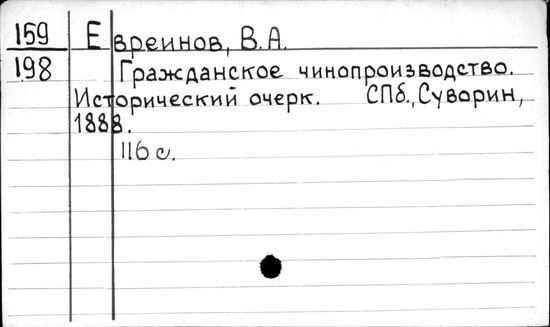 159 Евреинов, В.А.
198 Гражданское чинопроизводство.
Исторический очерк. СПб., Суворин,
1888.
116 с.